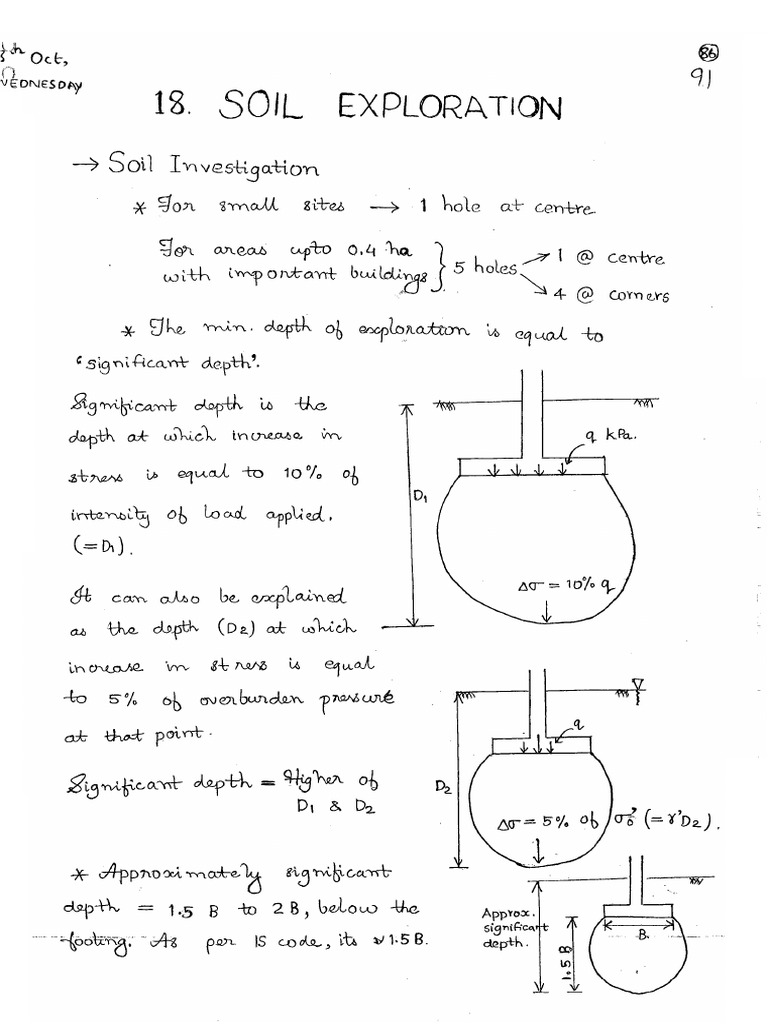 Oct,
WEDNESDAY
86
91
18. SOIL EXPLORATION
→ Soil Investigation
* For small sites → 1 hole at centre
For areas upto 0.4 ha
with important buildings } 5 holes
→ 1 @ centre
→ 4 @ corners
* The min. depth of exploration is equal to
'significant depth'.
Significant depth is the
depth at which increase in
stress is equal to 10% of
intensity of load applied.
(= D1).
q kPa.
D1
Δσ = 10% q
It can also be explained
as the depth (D2) at which
increase in stress is equal
to 5% of overburden pressure
at that point.
Significant depth = Higher of
D1 & D2
q
D2
Δσ = 5% of σ0' (= γ'D2).
* Approximately significant
depth = 1.5 B to 2B, below the
footing. As per IS code, its 1.5B.
Approx.
significant
depth.
1.5 B
B